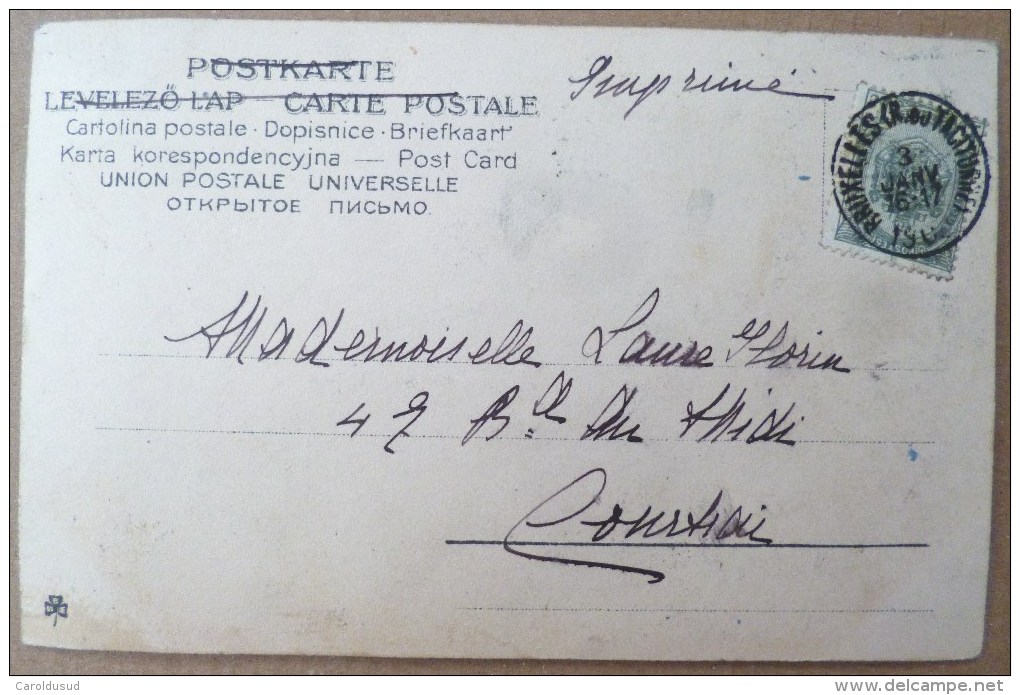 POSTKARTE
LEVELEZŐ LAP — CARTE POSTALE
Cartolina postale · Dopisnice · Briefkaart
Karta korespondencyjna — Post Card
UNION POSTALE UNIVERSELLE
ОТКРЫТОЕ ПИСЬМО.
Imprimé
BRUXELLES (R. DU TACITURNE)
3
JANV
16-17
Mademoiselle Laure Florin
47 Bd du Midi
Courtrai
Caroldusud
www.delcampe.net